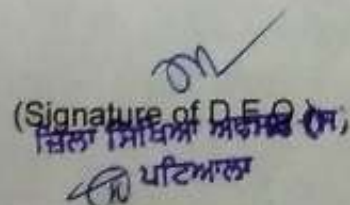 (Signature of D.E.O.)
ਜ਼ਿਲਾ ਸਿੱਖਿਆ ਅਫਸਰ (ਸ)
ਪਟਿਆਲਾ